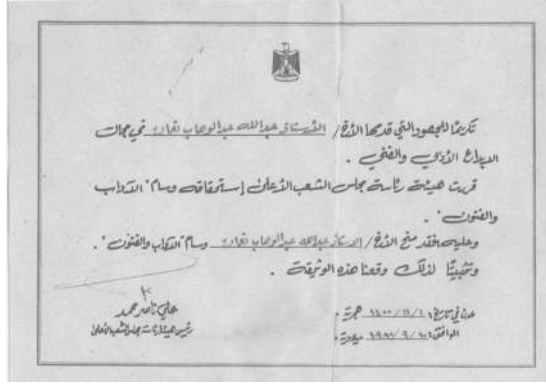 تكريمًا للجهود التي قدمها الأخ / الأستاذ عبدالله عبدالوهاب نعمان في مجالات
الإبداع الأدبي والفني .
قررت هيئة رئاسة مجلس الشعب الأعلى إستحقاقه وسام " الآداب
والفنون " .
وعليه فقد منح الأخ / الاستاذ عبدالله عبدالوهاب نعمان وسام " الآداب والفنون " .
وتثبيتًا لذلك وقعنا هذه الوثيقة .
علي ناصر محمد
رئيس هيئة رئاسة مجلس الشعب الأعلى
عدن في تاريخ ١٤٠٠/١١/١ هجرية .
الموافق ميلادية .